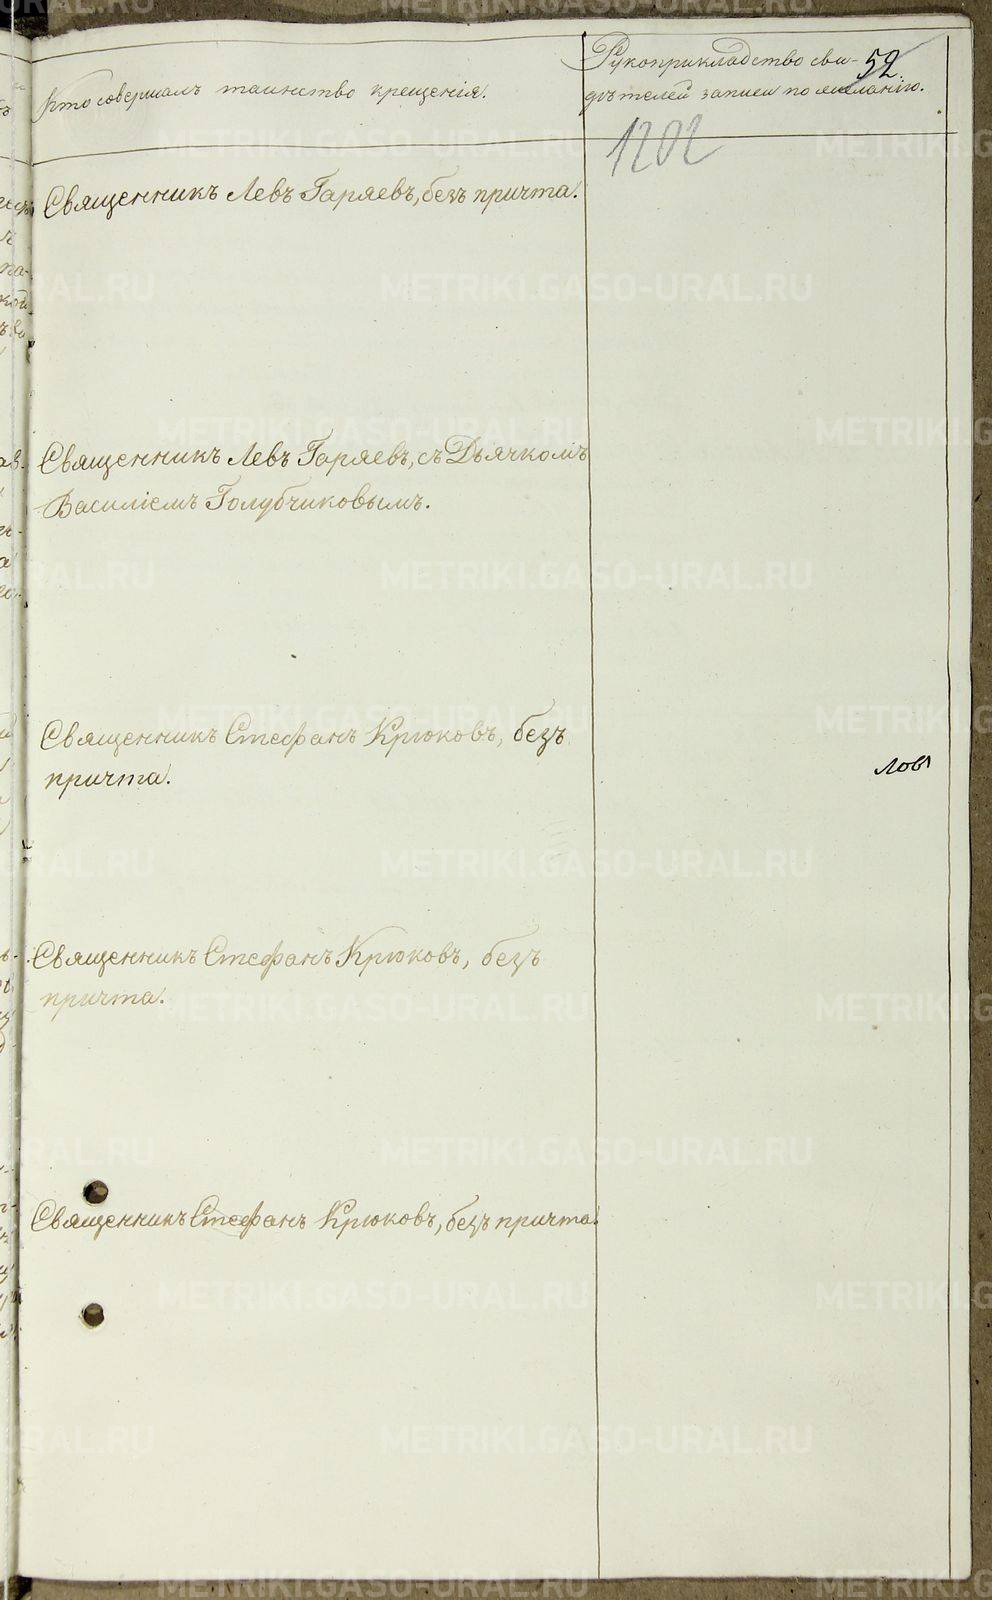 Кто совершалъ таинство крещенія.
Рукоприкладство сви-
дѣтелей записи по желанію.
52.
1202
Священникъ Левъ Гаряевъ, безъ причта.
Священникъ Левъ Гаряевъ, съ Дьячкомъ
Василіемъ Голубчиковымъ.
Священникъ Стефанъ Крюковъ, безъ
причта.
лов
Священникъ Стефанъ Крюковъ, безъ
причта.
Священникъ Стефанъ Крюковъ, безъ причта.
METRIKI.GASO-URAL.RU